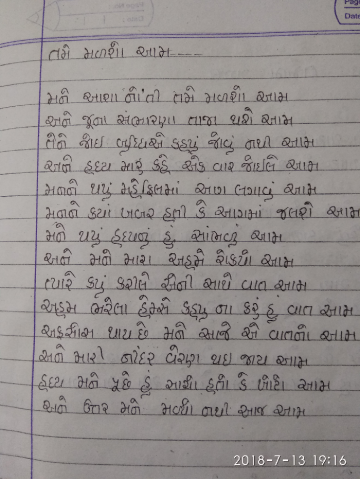 તમે મળશો આમ.....
મને આશા નો'તી તમે મળશો આમ
અને જૂના સંભારણા તાજા થશે આમ
તેને જોઈ હ્યદયએ કહ્યું જોવું નથી આમ
અને હૃદય મારુ કહે એક વાર જોઈલે આમ
મનને થયું મહેફિલમાં આગ લગાવું આમ
મનને ક્યાં ખબર હતી કે આગમાં જલશે આમ
મને થયું હૃદયનું હું સાંભળું આમ
અને મને મારા અહમે રોક્યો આમ
ત્યારે કહ્યું કરીલે એની સાથે વાત આમ
અહમ ભરેલા હેમએ કહ્યુ ના કરું હું વાત આમ
અફસોસ થાય છે મને આજે એ વાતનો આમ
અને મારી નીંદર વેરણ થઇ જાય આમ
હૃદય મને પૂછે હું સાચો હતો કે ખોટો આમ
અને ઉત્તર મને મળ્યો નથી આજ આમ
Page
Date
2018-7-13 19:16